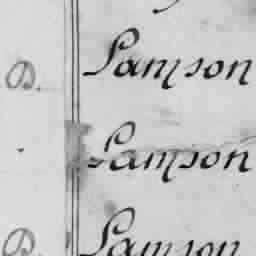 D. Samson
Samson
D. Samson